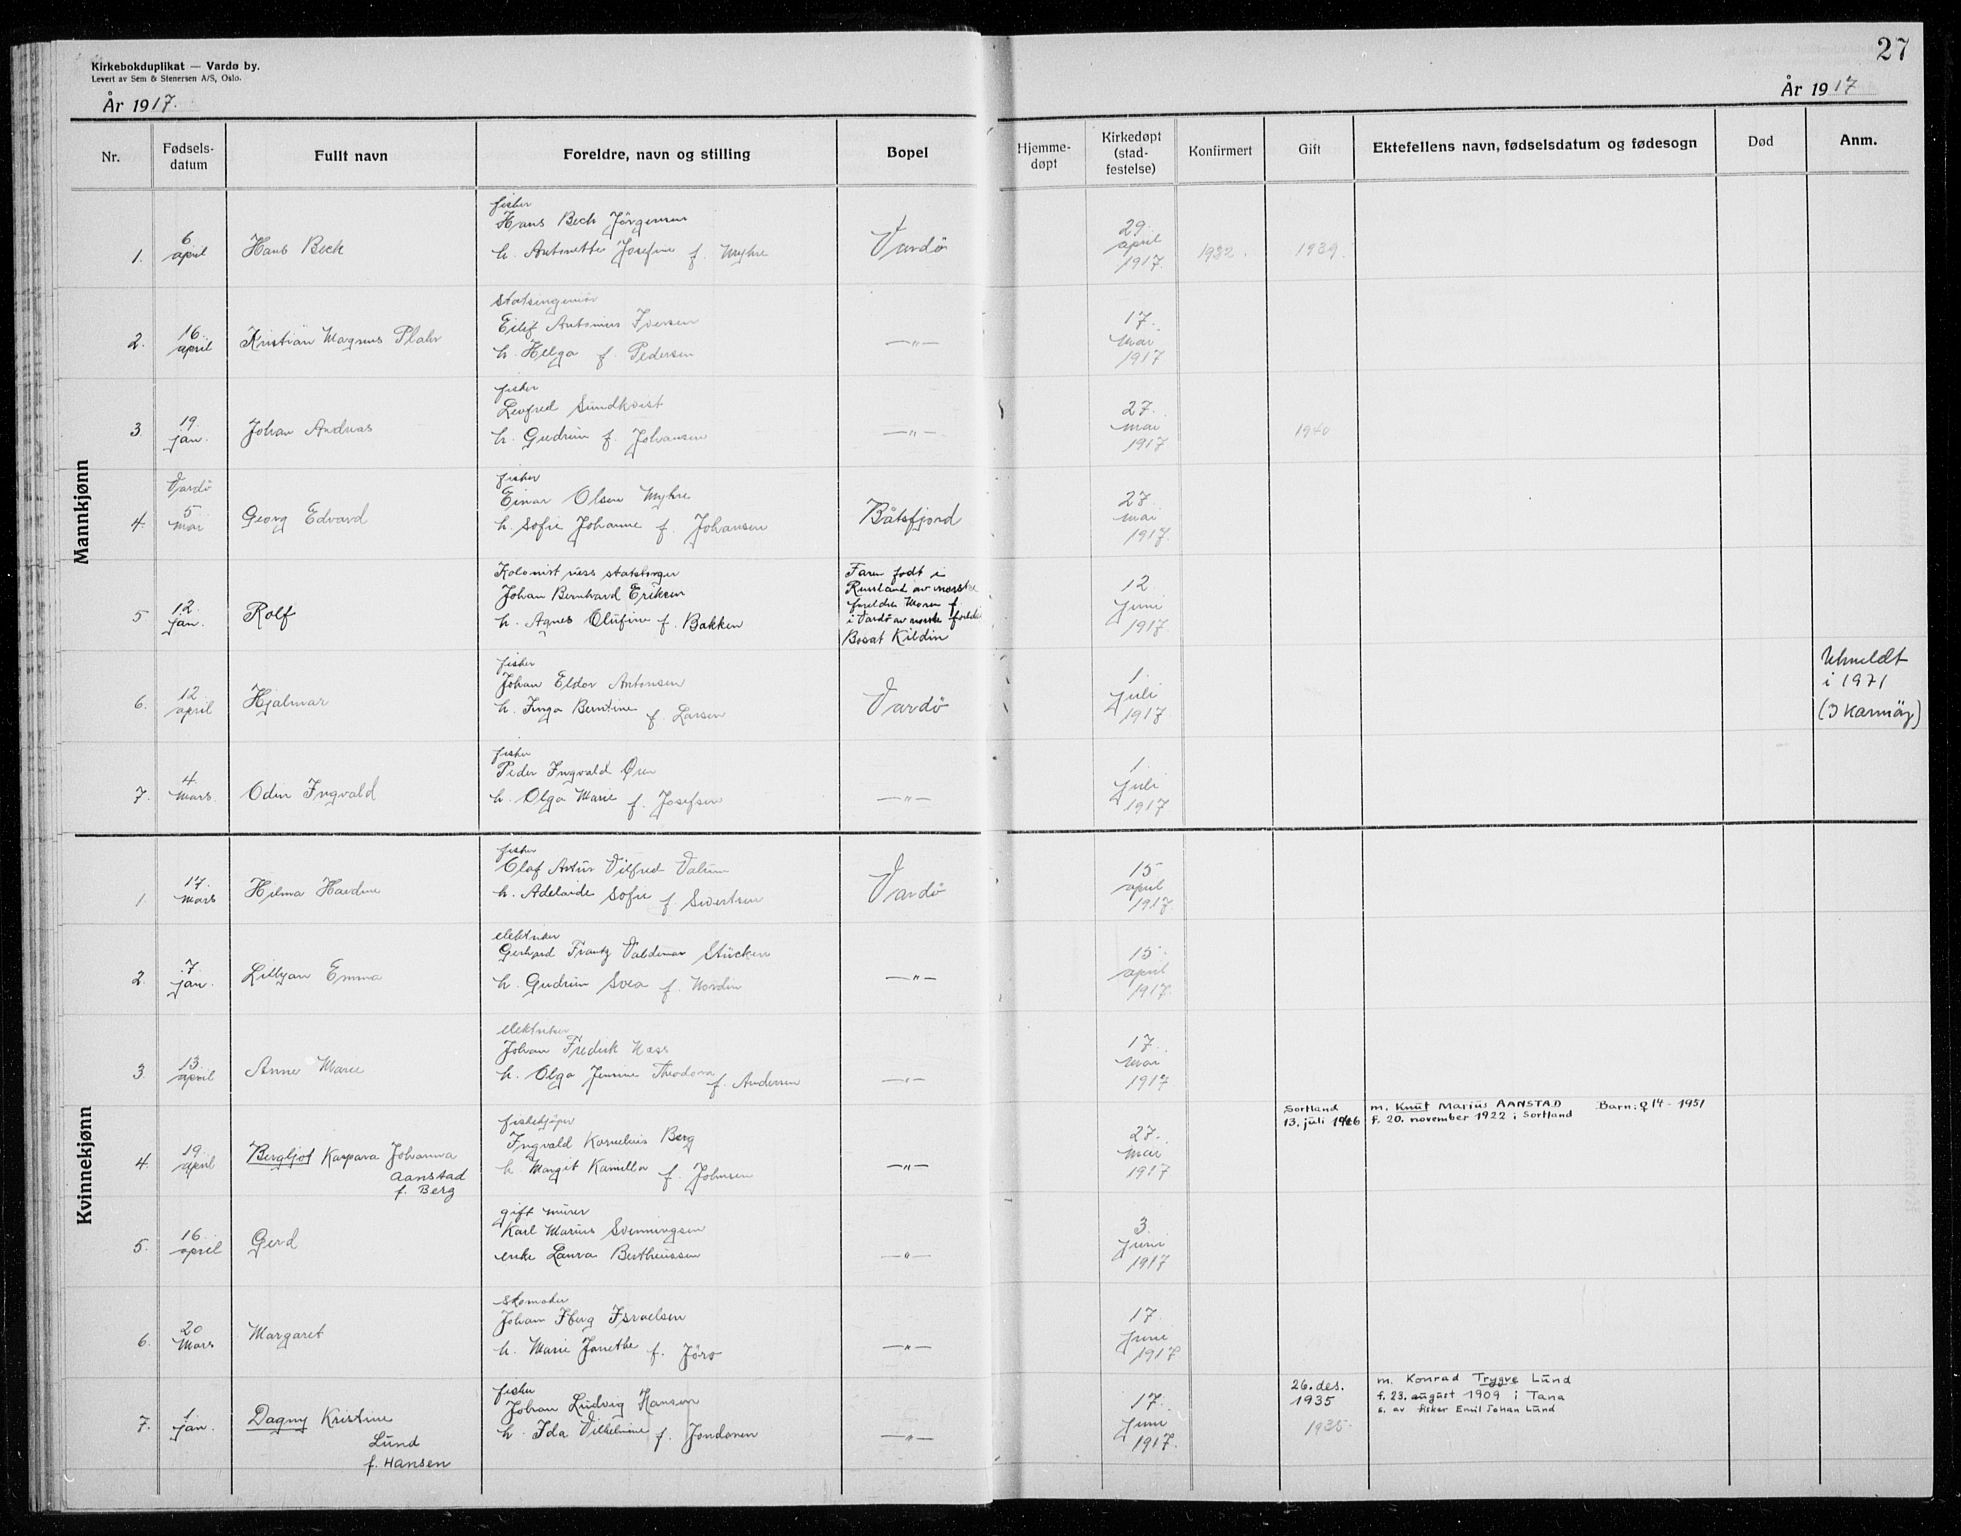 Kirkebokduplikat — Vardø by.
Levert av Sem & Stenersen A/S, Oslo.
År 1917.
27
År 1917
Nr.
Fødsels-
datum
Fullt navn
Foreldre, navn og stilling
Bopel
Hjemme-
døpt
Kirkedøpt
(stad-
festelse)
Konfirmert
Gift
Ektefellens navn, fødselsdatum og fødesogn
Død
Anm.
Mannkjønn
1.
6
april
Hans Bech
fisker
Hans Bech Jörgensen
h. Antonette Josefine f. Myhre
Vardø
29.
april
1917.
1932.
1939.
2.
16.
april
Kristian Magnus
statsingeniør
Eilif Antonius Iversen
h. Helga f. Pedersen
—"—
17.
mai
1917
3.
19.
jan.
Johan Andreas
fisker
Leofred Sundkvist
h. Gudrun f. Johansen
—"—
27.
mai
1917
1940
4.
Vardö
5
mai
Georg Edvard
fisker
Einar Olsen Myhre
h. Sofie Johanne f. Johansen
Båtsfjord
27.
mai
1917.
5
12.
jan.
Rolf
Kolonist russ statsborger
Johan Bernhard Eriksen
h. Agnes Olufine f. Bakken
Faren født i
Russland av norske
foreldre Moren f.
i Vardö av norske foreldre
Bosat Kildin
12
juni
1917.
6.
12
april
Hjalmar
fisker
Johan Eldor Antonsen
h. Inga Berntine f. Larsen
Vardø
1.
juli
1917
Utmeldt
i 1971
(I Karmöy)
7.
4.
mars
Odin Ingvald
fisker
Peder Ingvald Øien
h. Olga Marie f. Josefsen
—"—
1.
juli
1917
Kvinnekjønn
1
17.
mars
Hilma Havdine
fisker
Olaf Artur Vilfred Valum
h. Adelaide Sofie f. Sivertsen
Vardø
15
april
1917.
2.
7.
jan.
Lillyan Emma
elektriker
Gerhard Frantz Valdemar Stücken
h. Gudrun Svea f. Nordin
—"—
15.
april
1917.
3.
13.
april
Anne Marie
elektriker
Johan Fredrik Næss
h. Olga Jennine Theodora f. Andersen
—"—
17.
mai
1917
4.
19.
april
Bergljot Kaspara Johanna
Aanstad
f. Berg
fiskekjöper
Ingvald Kornelius Berg
h. Margit Kamilla f. Johnsen
—"—
27.
mai
1917
Sortland
13. juli 1946
m. Knut Marius AANSTAD Barn: ♀ 14 - 1951
f. 20. november 1922 i Sortland
5.
16.
april
Gerd
gift murer
Karl Marius Svenningsen
enke Laura Bertheussen
—"—
3.
juni
1917
6.
20
mars
Margaret
skomaker
Johan Iberg Israelsen
h. Marie Janethe f. Jörs
—"—
17
juni
1917.
7.
1
jan.
Dagny Kristine
Lund
f. Hansen
fisker
Johan Ludvig Hansen
h. Ida Vilhelmine f. Jondonen
—"—
17.
juni
1917.
26. des.
1935
1935.
m. Konrad Trygve Lund
f. 23. august 1909 i Tana
s. av fisker Emil Johan Lund